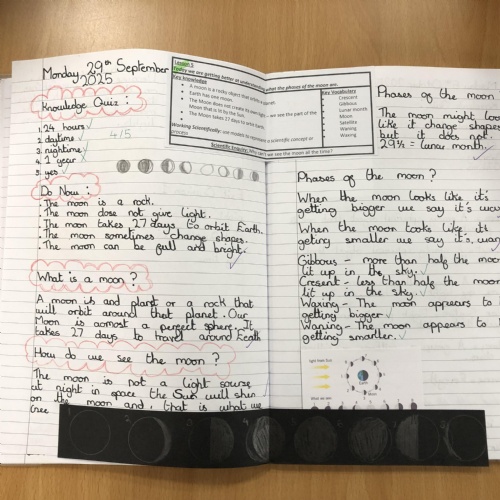 Monday 29th September
2025
Knowledge Quiz:
1. 24 hours
2. daytime
3. nighttime
4. 1 year
5. yes
4/5
Do Now:
The moon is a rock.
The moon dose not give light.
The moon takes 27 days to orbit Earth.
The moon sometimes change shapes.
The moon can be full and bright.
What is a moon?
A moon is and plant or a rock that
will orbit around that planet. Our
Moon is aomost a perfect sphere. It
takes 27 days to travel around Earth
How do we see the moon?
The moon is not a light sourse
at night in space the Sun will
on the moon and that is what we
Lesson 5
Today we are getting better at understanding what the phases of the moon are.
Key Knowledge
A moon is a rocky object that orbits a planet.
Earth has one moon.
The Moon does not create its own light – we see the part of the
Moon that is lit by the Sun.
The Moon takes 27 days to orbit Earth.
Key Vocabulary
Crescent
Gibbous
Lunar month
Moon
Satellite
Waning
Waxing
Working Scientifically: use models to represent a scientific concept or
process
Scientific Enquiry: Why can't we see the moon all the time?
Phases of the moon
The moon might look
like it change shapes
but it does not.
29½ = lunar month.
Phases of the moon?
When the moon looks like it's
getting bigger we say it's
When the moon looks like it
geting smaller we say it's
Gibbous – more than half the moon
lit up in the sky.
Cresent – less than half the moon
lit up in the sky.
Waxing – The moon appears to
getting bigger
Waning – The moon appears to
getting smaller.
light from Sun
Earth
Moon
What we see: